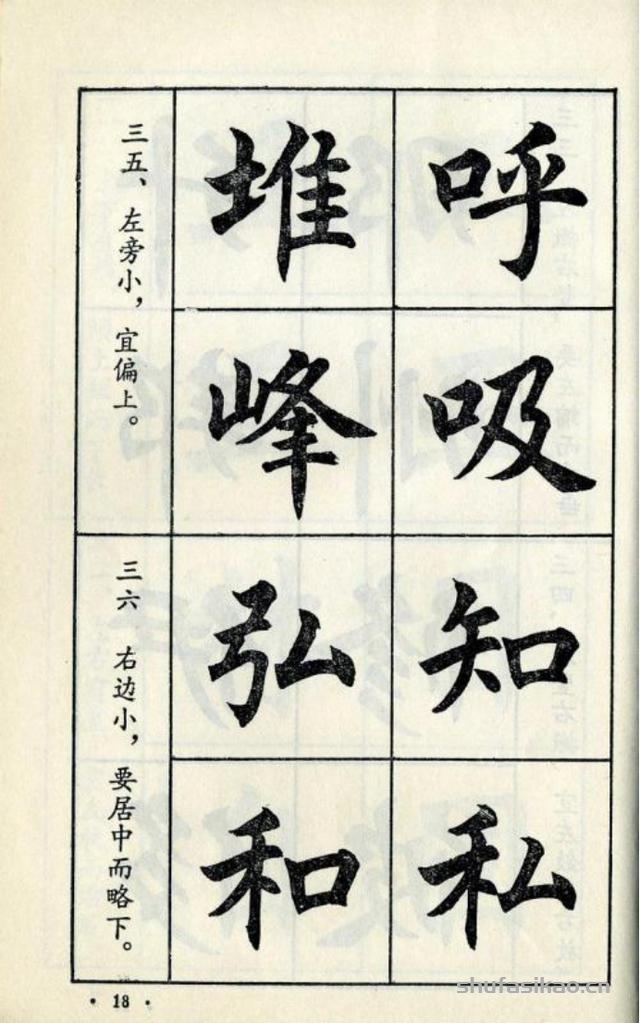 呼吸知私
堆峰弘和
三五、左旁小，宜偏上。
三六 右边小，要居中而略下。
·18·
shufasikao.cn